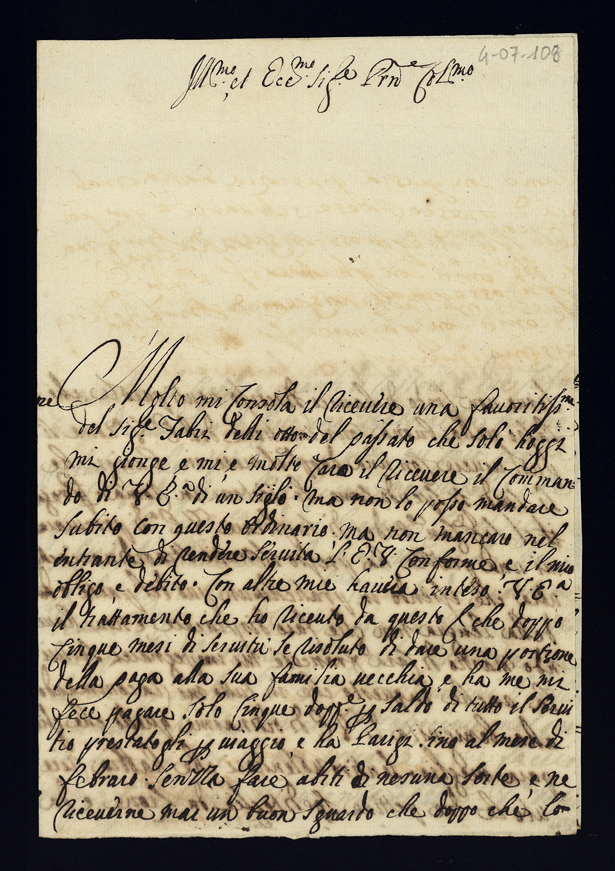 4-07-108
Ill.mo et Ecc.mo Sig.e Prn.e Col.mo
Molto mi Consola il riceuere una fauoritiss.ma
del sig.e Fabri delli otto del passato che solo hoggi
mi gionge e mi e molto Cara il riceuere il Comman
do di V E.a di un siglo. ma non lo posso mandare
subito con questo ordinario. ma non mancaro nel
entrante di rendere seruita L E V Conforme e il mio
obligo e debito. Con altre mie hauera inteso V E.a
il trattamento che ho riceuto da questo che doppo
Cinque mesi di seruitù se risoluto di dare una portione
della paga alla sua familia uecchia, e ha me mi
fece pagare solo Cinque dopp.e p saldo di tutto il Serui
tio prestatogli p uiaggio, e ha Parigi sino al mese di
febraro senzza fare abiti di nesuna sorte e ne
riceuerne mai un buon sguardo che doppo che Co